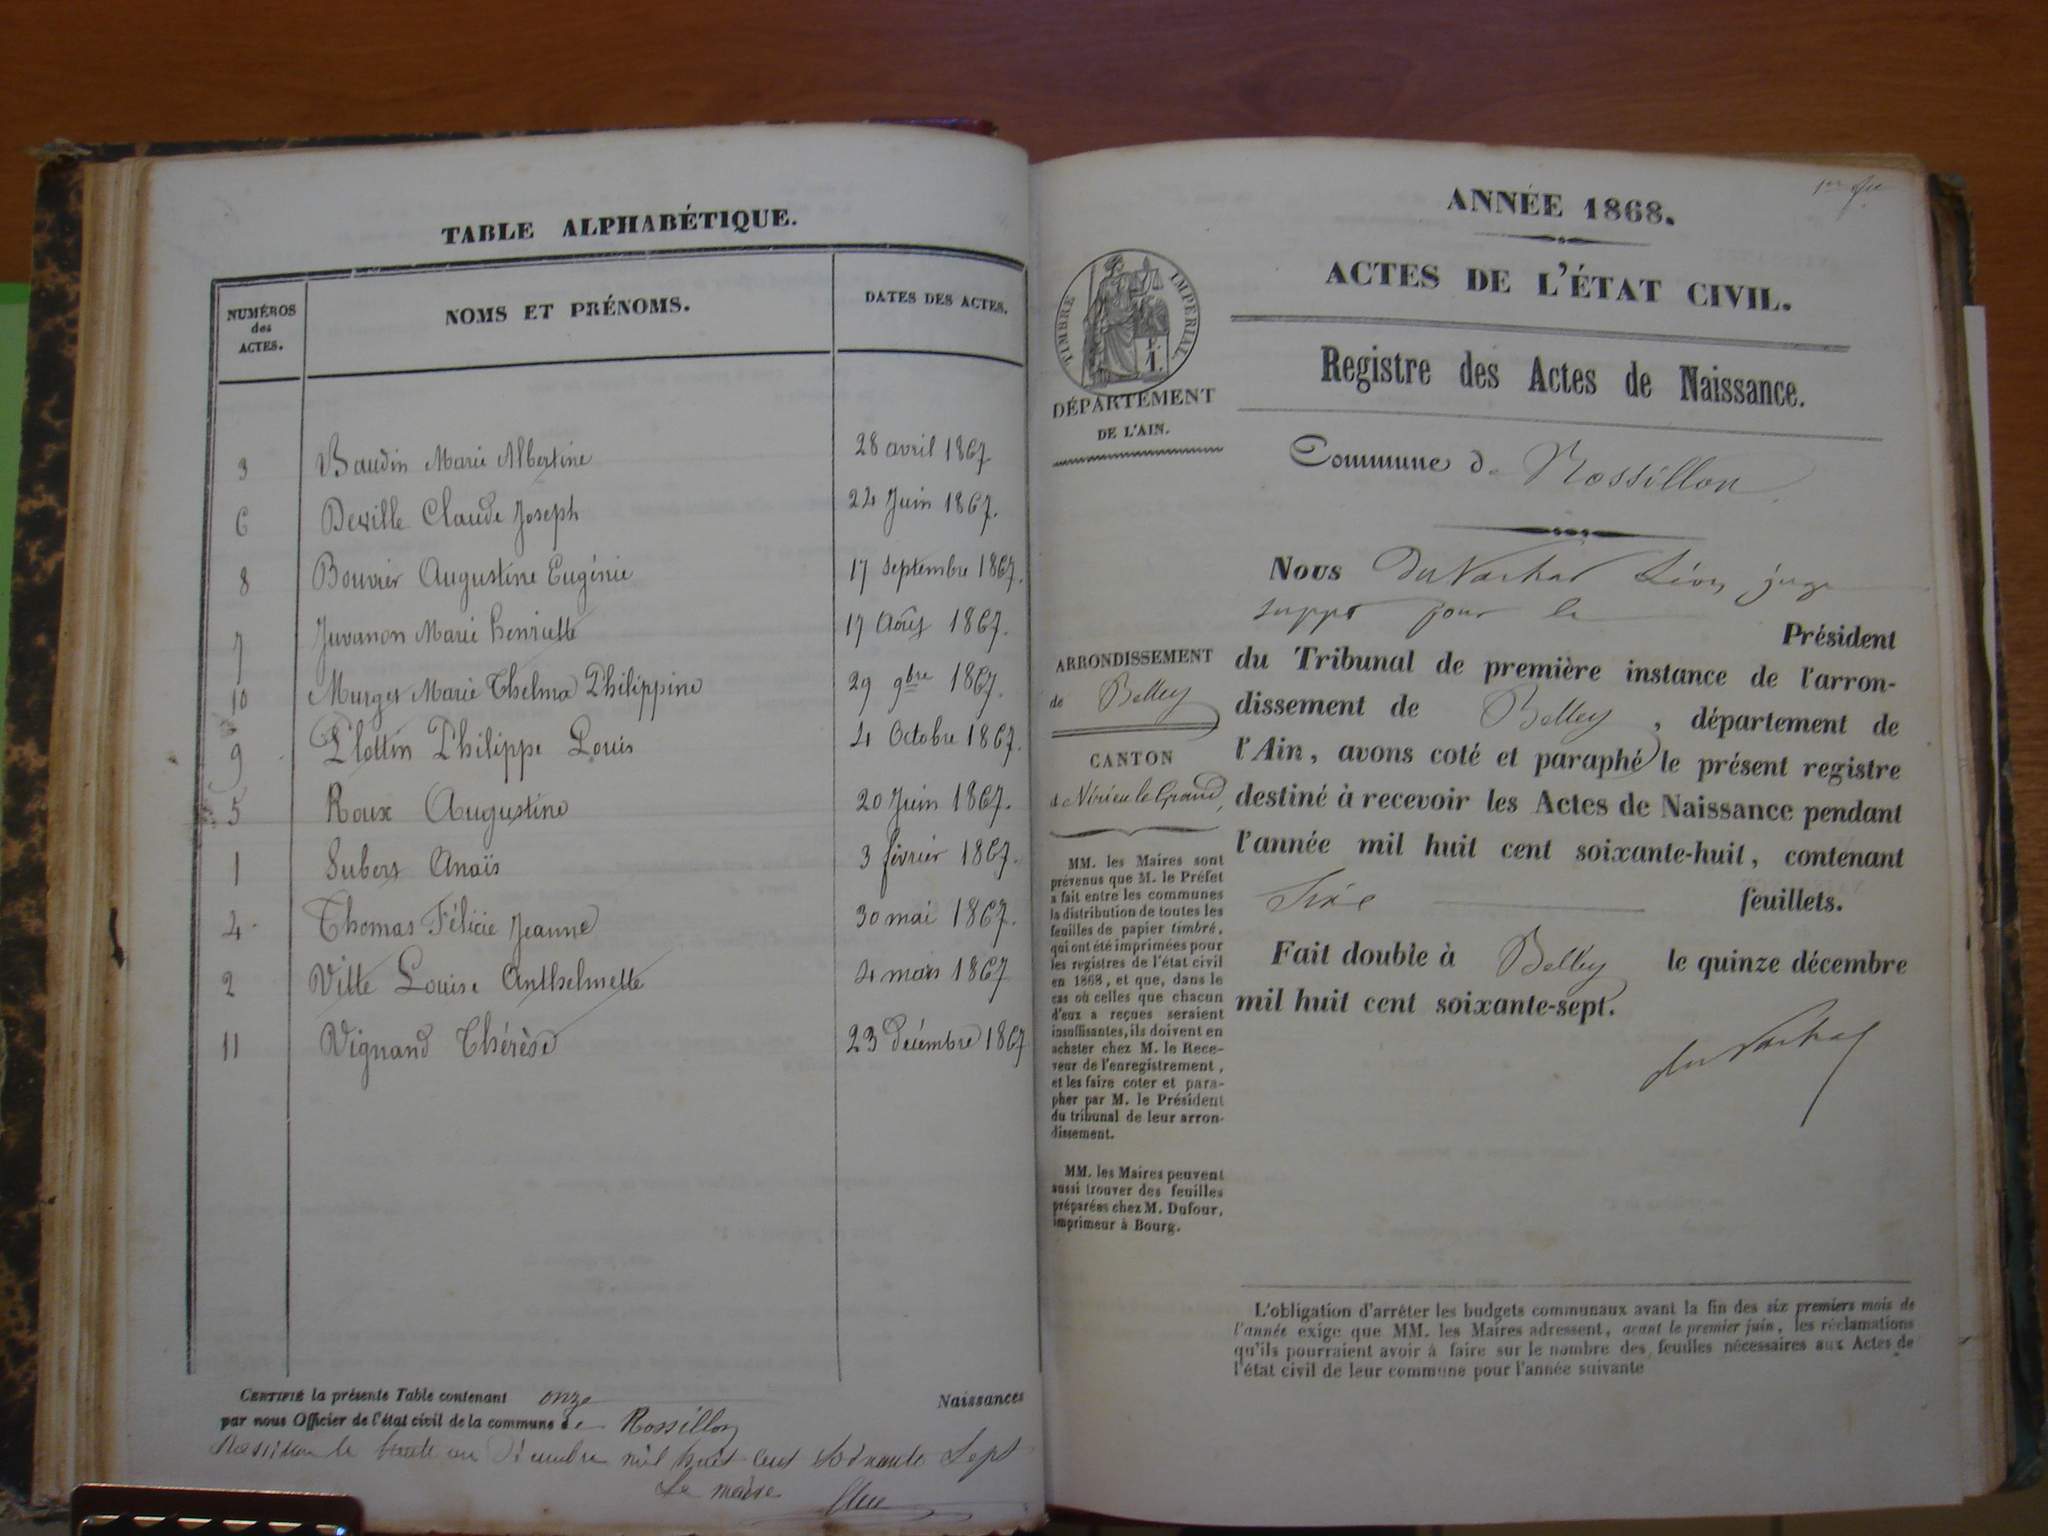 TABLE ALPHABÉTIQUE.
NUMÉROS
des
ACTES.
NOMS ET PRÉNOMS.
DATES DES ACTES.
3 Baudin Marie Albertine 28 avril 1867
6 Deville Claude Joseph 24 Juin 1867.
8 Bouvier Augustine Eugénie 17 Septembre 1867.
7 Juvanon Marie henriette 17 Août 1867.
10 Murger Marie Thelma Philippine 29 9bre 1867.
9 Flottin Philippe Louis 4 Octobre 1867.
5 Roux Augustine 20 Juin 1867.
1 Subers Anaïs 3 février 1867.
4 Thomas Félicie Jeanne 30 mai 1867.
2 Vitte Louise Anthelmette 4 mars 1867
11 Vignand Thérèse 23 décembre 1867
CERTIFIÉ la présente Table contenant onze Naissances
par nous Officier de l'état civil de la commune de Rossillon
Rossillon le trente un Décembre mil huit cent soixante Sept
Le maire
ANNÉE 1868.
ACTES DE L'ÉTAT CIVIL.
Registre des Actes de Naissance.
TIMBRE IMPÉRIAL
1.
DÉPARTEMENT
DE L'AIN.
Commune de Rossillon
Nous Léon juge
suppt pour le
Président
du Tribunal de première instance de l'arron-
dissement de Belley, département de
l'Ain, avons coté et paraphé le présent registre
destiné à recevoir les Actes de Naissance pendant
l'année mil huit cent soixante-huit, contenant
feuillets.
Fait double à Belley le quinze décembre
mil huit cent soixante-sept.
ARRONDISSEMENT
de Belley
CANTON
de Virieu le Grand,
MM. les Maires sont
prévenus que M. le Préfet
a fait entre les communes
la distribution de toutes les
feuilles de papier timbré,
qui ont été imprimées pour
les registres de l'état civil
en 1868, et que, dans le
cas où celles que chacun
d'eux a reçues seraient
insuffisantes, ils doivent en
acheter chez M. le Rece-
veur de l'enregistrement,
et les faire coter et para-
pher par M. le Président
du tribunal de leur arron-
dissement.
MM. les Maires peuvent
aussi trouver des feuilles
préparées chez M. Dufour,
imprimeur à Bourg.
L'obligation d'arrêter les budgets communaux avant la fin des six premiers mois de
l'année exige que MM. les Maires adressent, avant le premier juin, les réclamations
qu'ils pourraient avoir à faire sur le nombre des feuilles nécessaires aux Actes de
l'état civil de leur commune pour l'année suivante